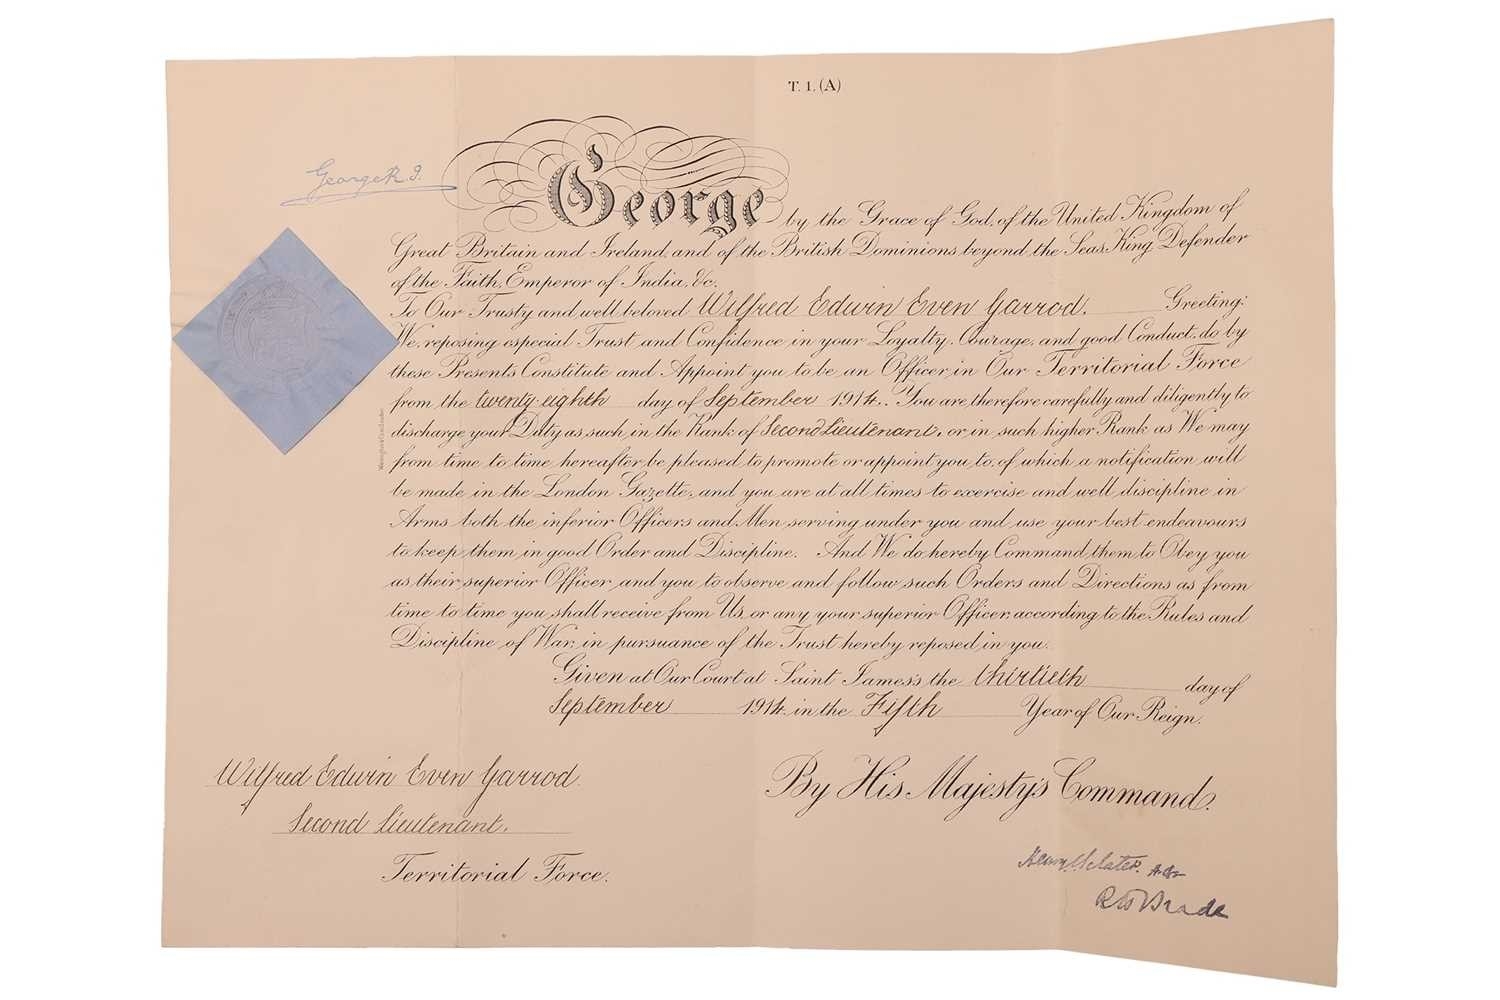 T. 1. (A)
George R. I.
George by the Grace of God, of the United Kingdom of
Great Britain and Ireland, and of the British Dominions beyond the Seas, King, Defender
of the Faith, Emperor of India, &c.
To Our Trusty and well beloved Wilfred Edwin Even Garrod. Greeting:
We, reposing especial Trust and Confidence in your Loyalty, Courage, and good Conduct, do by
these Presents Constitute and Appoint you to be an Officer in Our Territorial Force
from the twenty-eighth day of September 1914. You are therefore carefully and diligently to
discharge your Duty as such in the Rank of Second Lieutenant, or in such higher Rank as We may
from time to time hereafter be pleased to promote or appoint you to, of which a notification will
be made in the London Gazette, and you are at all times to exercise and well discipline in
Arms both the inferior Officers and Men serving under you and use your best endeavours
to keep them in good Order and Discipline. And We do hereby Command them to Obey you
as their superior Officer and you to observe and follow such Orders and Directions as from
time to time you shall receive from Us, or any your superior Officer, according to the Rules and
Discipline of War, in pursuance of the Trust hereby reposed in you.
Given at Our Court at Saint James's the thirtieth day of
September 1914 in the Fifth Year of Our Reign.
By His Majesty's Command.
Wilfred Edwin Even Garrod.
Second Lieutenant.
Territorial Force.
Sclater.
R H Brade